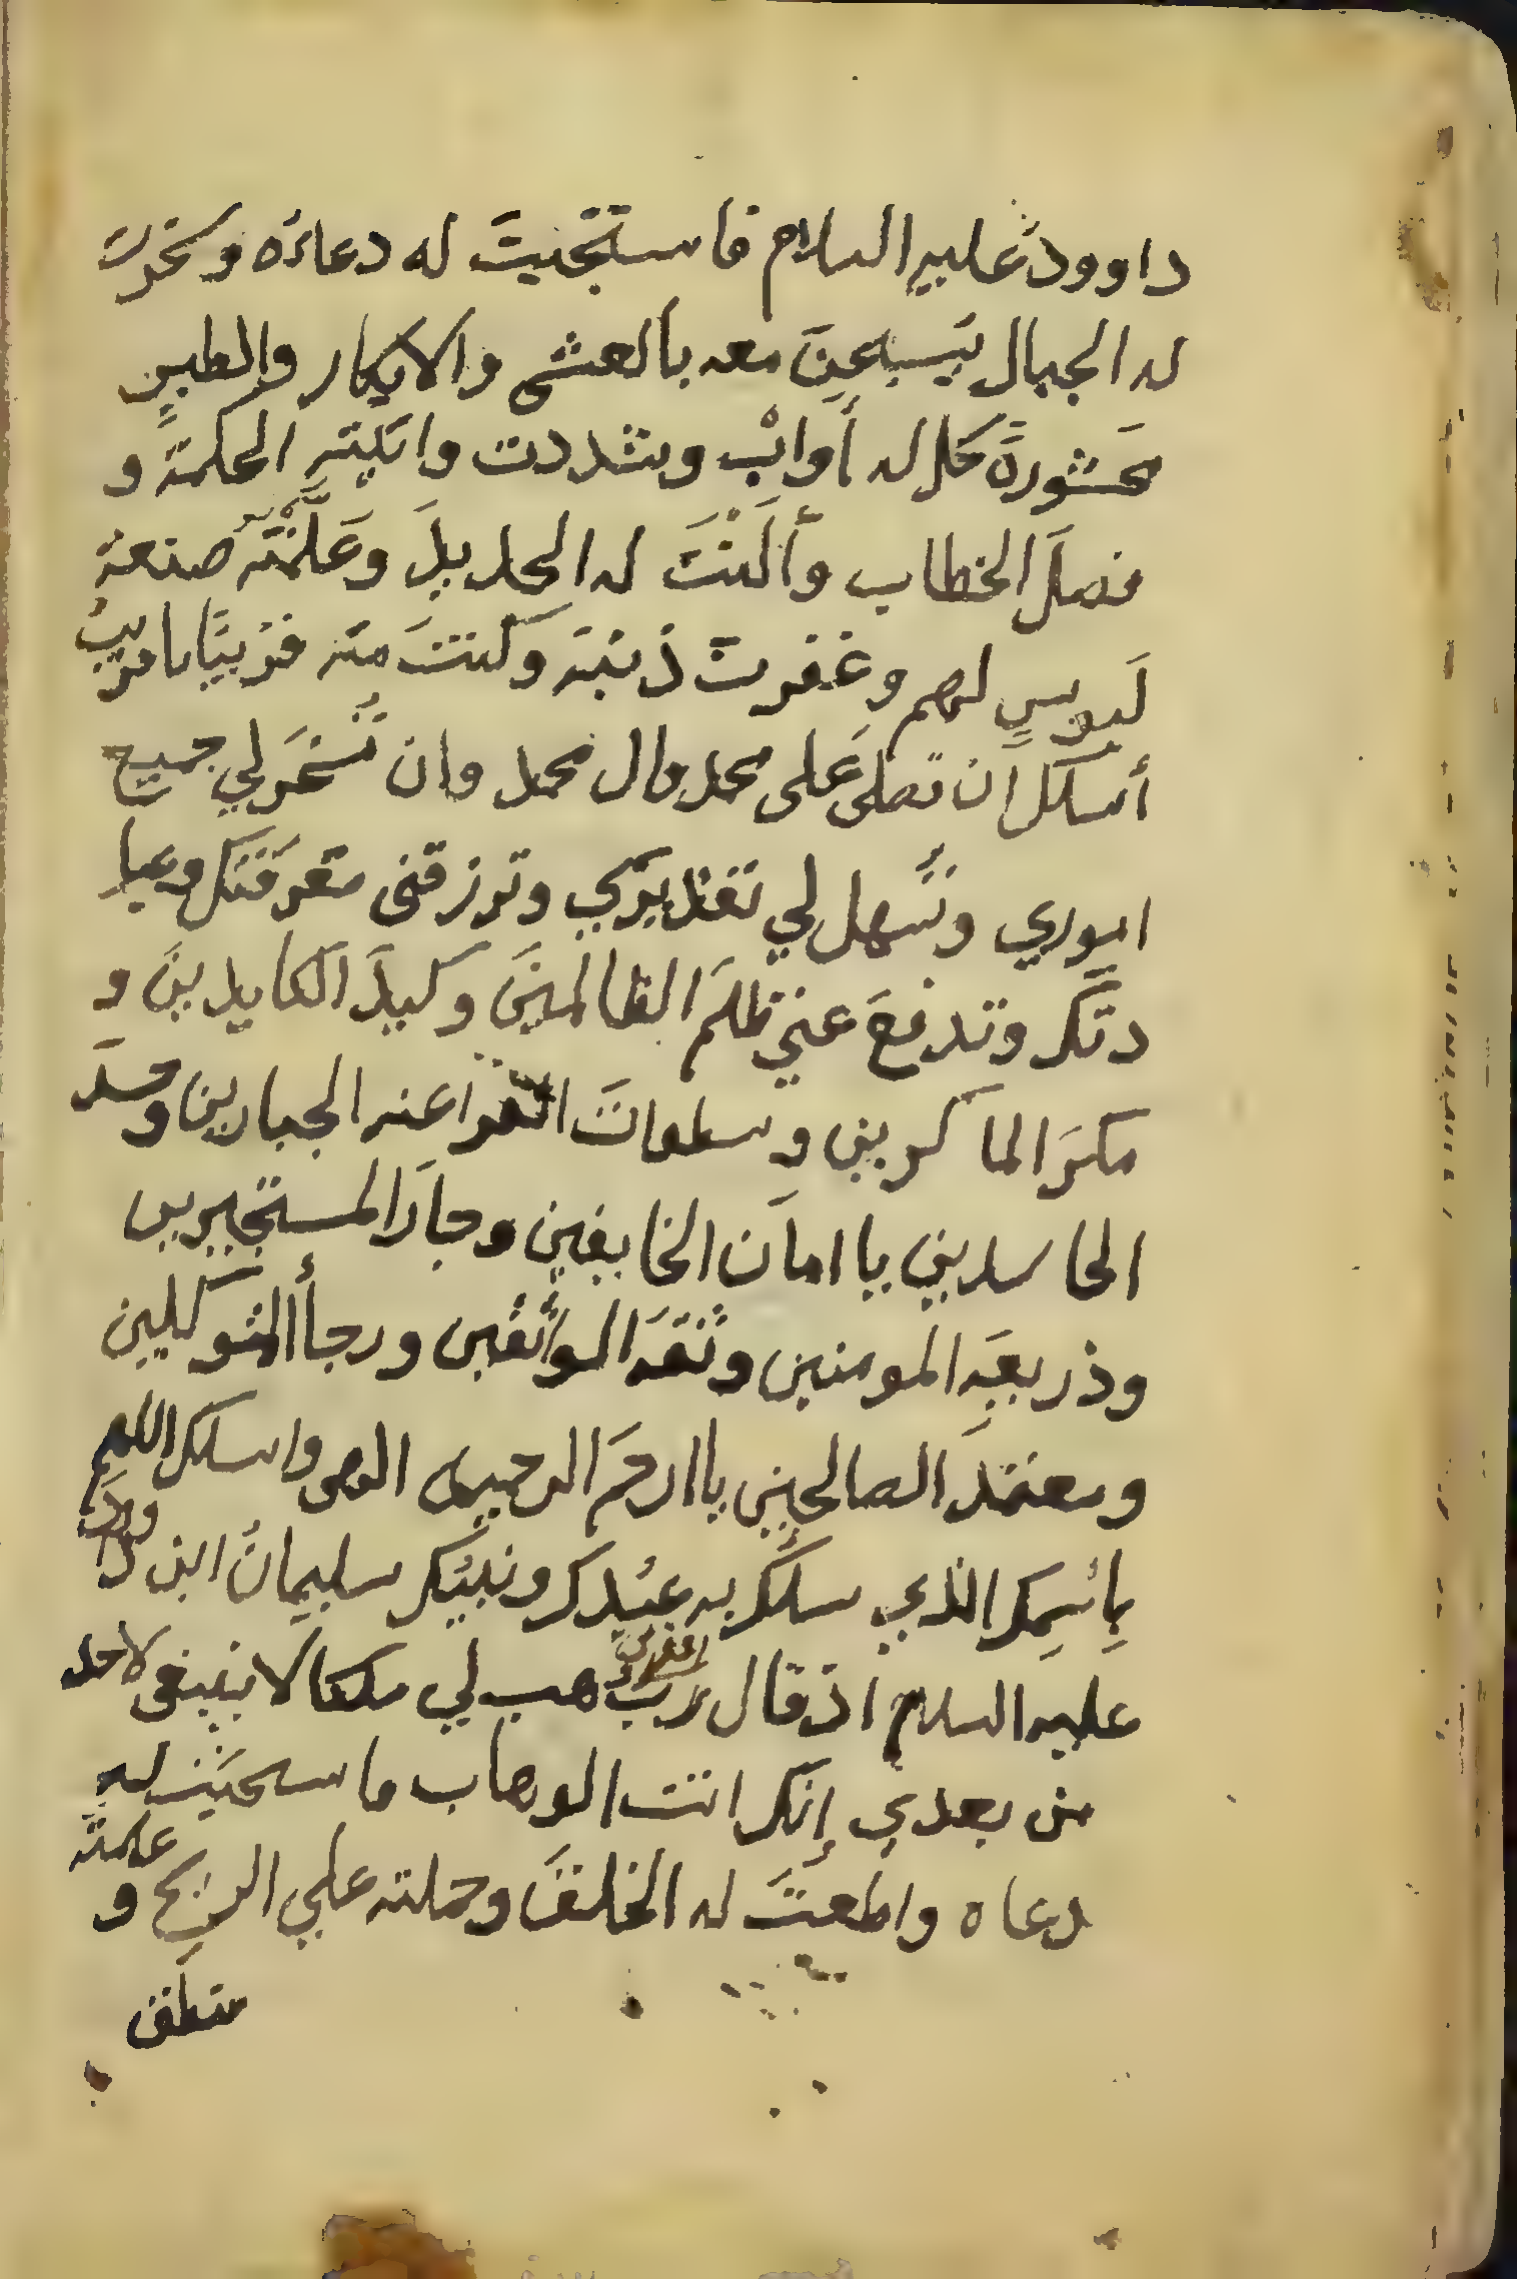 داوود عليه السلام فاستجبت له دعاءه وسخرت
له الجبال يسبحن معه بالعشي والابكار والطير
محشورة كل له أواب وشددت واتيته الحكمة و
فصل الخطاب وألنت له الحديد وعلمته صنعة
لبوس لهم وغفرت ذنبه وكنت منه قريبا يا قريب
أسئلك ان تصلى على محمد وال محمد وان تسخر لي جميع
اموري وتسهل لي تقديري وترزقني مغفرتك وعبا
دتك وتدفع عني ظلم الظالمين وكيد الكايدين و
مكر الماكرين وسطوات الفراعنه الجبارين وحسد
الحاسدين يا امان الخايفين وجار المستجيرين
وذريعة المومنين وثقة الواثقين ورجأ المتوكلين
ومعتمد الصالحين يا ارحم الرحيمه الهي واسلك اللهم
بائسمك الذي سئلك به عبدك ونبيك سليمان ابن داوود
عليه السلام اذ قال رب اغفر لي وهب لي ملكا لا ينبغى لاحد
من بعدي إنك انت الوهاب فاستحبت له
دعاه واطعت له الخلق وحملته على الريح و علمته
منطق